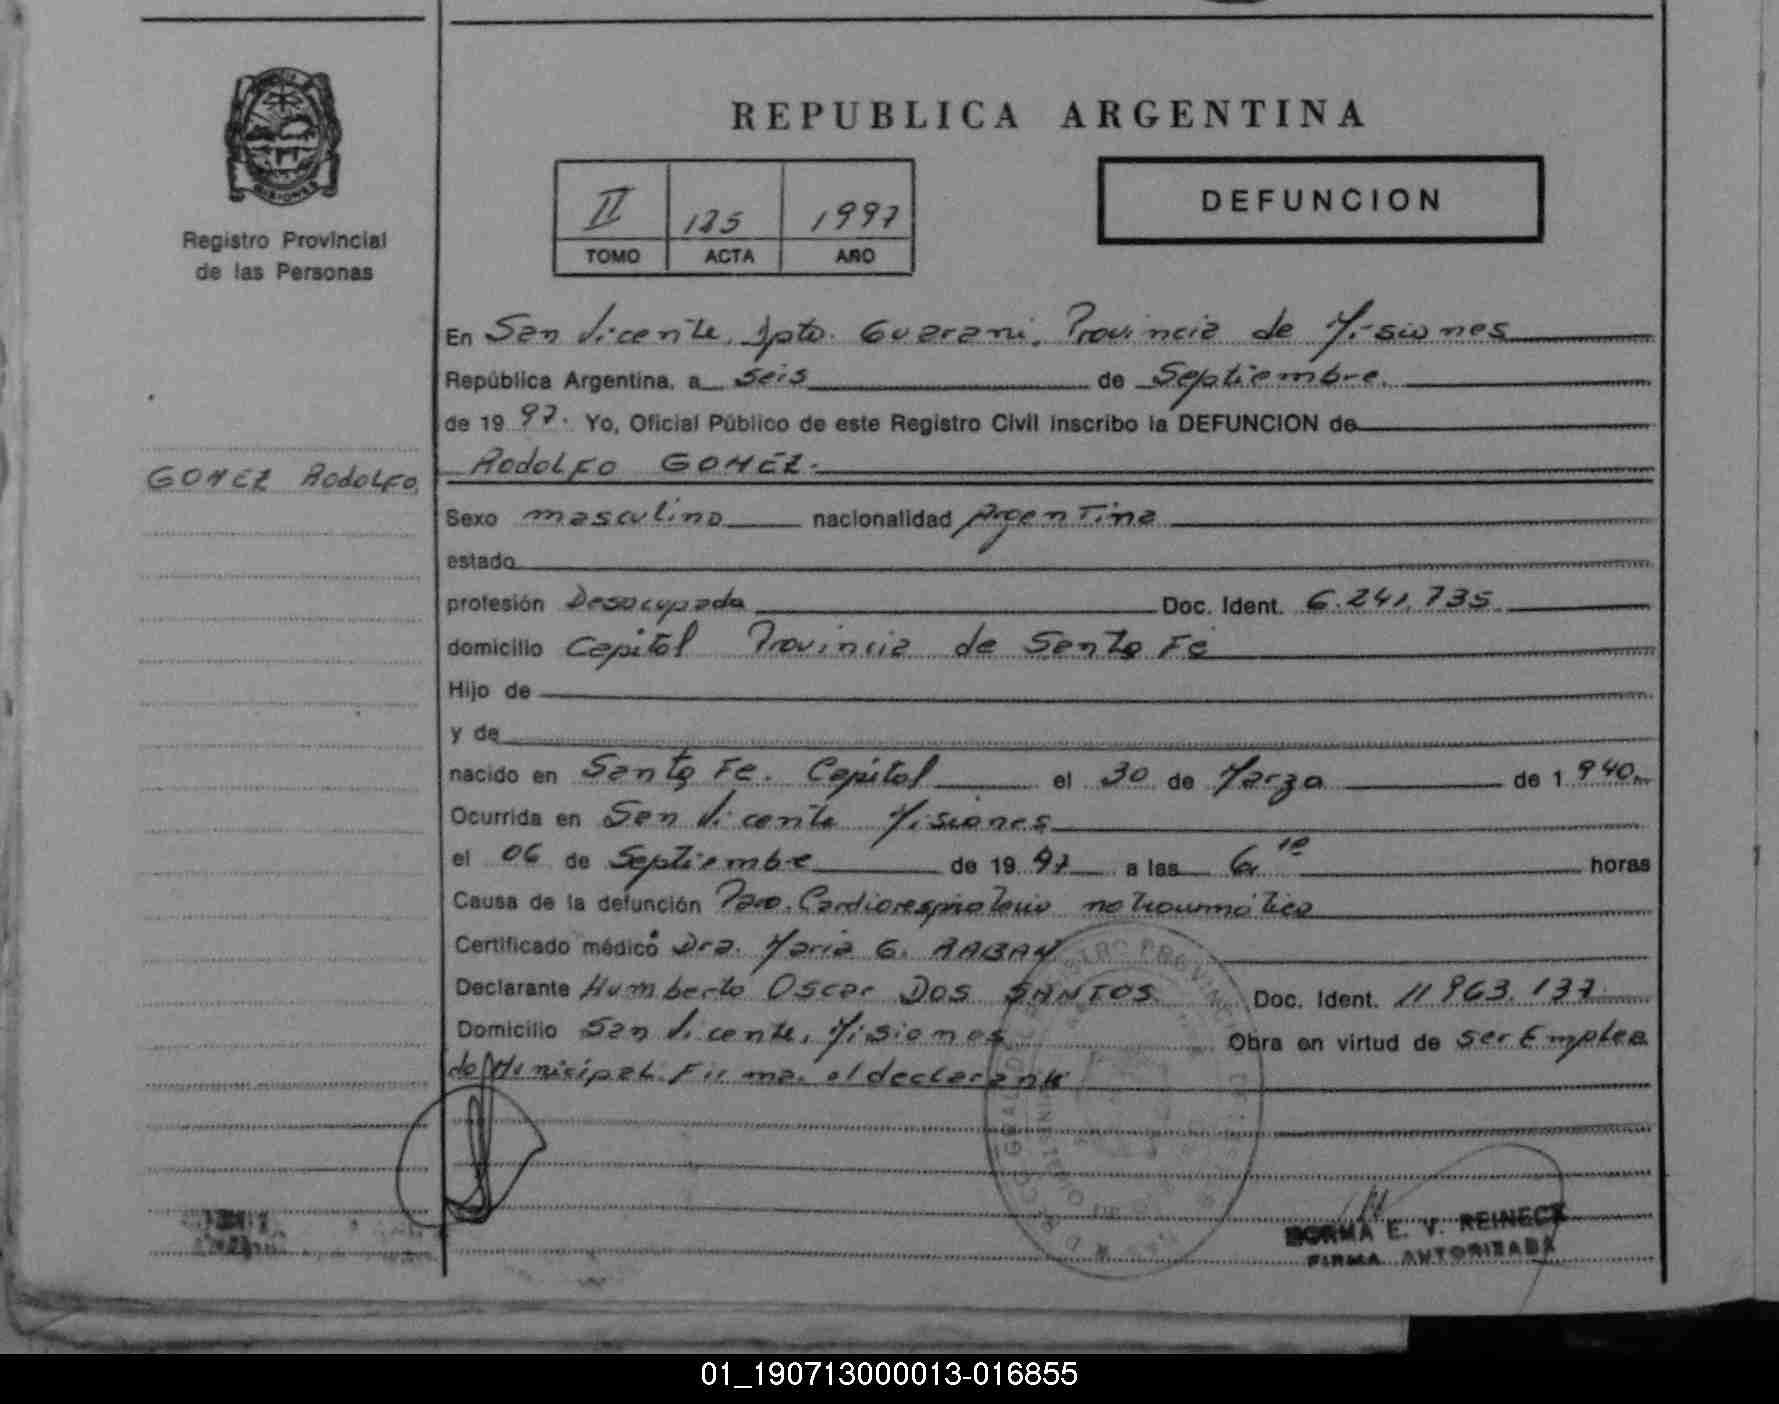 REPUBLICA ARGENTINA
MISIONES
Registro Provincial
de las Personas
II 125 1997
TOMO ACTA AÑO
DEFUNCION
En San Vicente, Dpto. Guarani, Provincia de Misiones
República Argentina, a seis de Septiembre.
de 19 97. Yo, Oficial Público de este Registro Civil inscribo la DEFUNCION de
GOMEZ Rodolfo
Rodolfo GOMEZ.
Sexo masculino nacionalidad Argentina
estado
profesión Desocupada Doc. Ident. 6.241.735
domicilio Capital Provincia de Santa Fé
Hijo de
y de
nacido en Santa Fe. Capital el 30 de Marzo de 1 940
Ocurrida en San Vicente Misiones
el 06 de Septiembre de 19 97 a las 6,10 horas
Causa de la defunción Paro Cardiorespiratorio no traumático
Certificado médico Dra. Maria G.
Declarante Humberto Oscar DOS SANTOS Doc. Ident. 11 963.137
Domicilio San Vicente, Misiones Obra en virtud de ser Emplea
do Municipal. Firma el declarante
NORMA E. V. REINECK
FIRMA AUTORIZADA
01_190713000013-016855